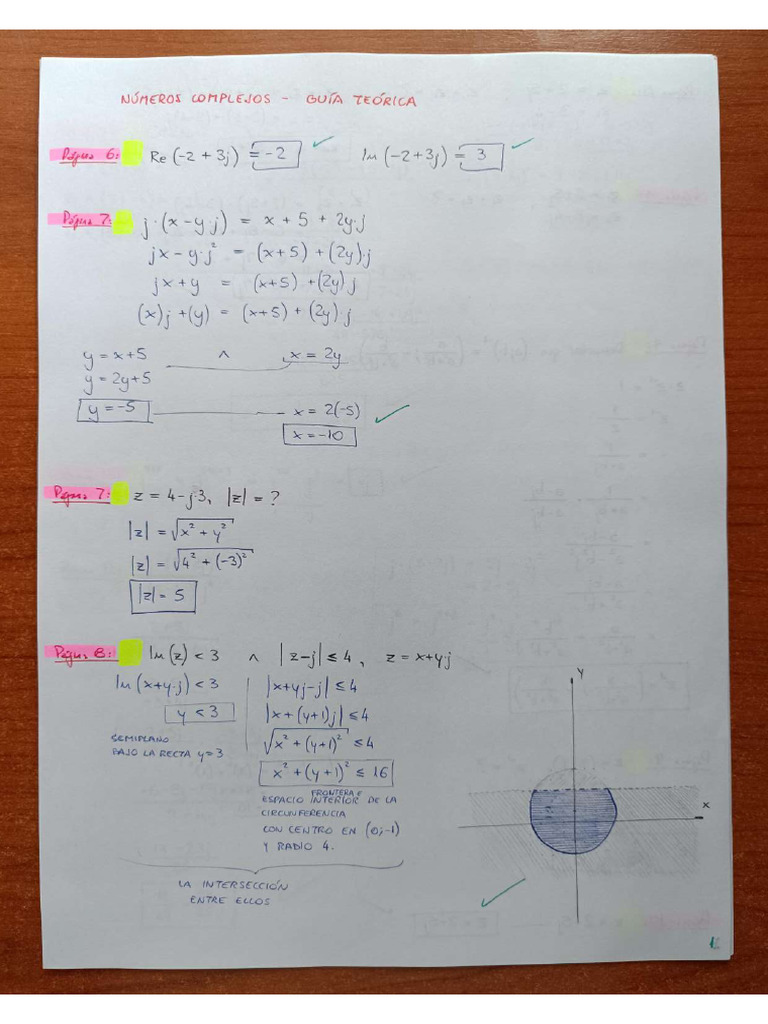 NÚMEROS COMPLEJOS - GUÍA TEÓRICA
Página 6: Re (-2 + 3j) = -2 Im (-2 + 3j) = 3
Página 7: j·(x - y·j) = x + 5 + 2y·j
jx - y·j² = (x+5) + (2y)·j
jx + y = (x+5) + (2y)·j
(x)j + (y) = (x+5) + (2y)·j
y = x+5 ∧ x = 2y
y = 2y+5
y = -5 x = 2(-5)
x = -10
Página 7: z = 4-j·3, |z| = ?
|z| = √(x² + y²)
|z| = √(4² + (-3)²)
|z| = 5
Página 8: Im(z) < 3 ∧ |z-j| ≤ 4, z = x+y·j
Im (x+y·j) < 3 |x+yj-j| ≤ 4
y < 3 |x + (y+1)j| ≤ 4
√(x² + (y+1)²) ≤ 4
x² + (y+1)² ≤ 16
SEMIPLANO
BAJO LA RECTA y=3
FRONTERA E
ESPACIO INTERIOR DE LA
CIRCUNFERENCIA
CON CENTRO EN (0;-1)
Y RADIO 4.
LA INTERSECCIÓN
ENTRE ELLOS
Y
x